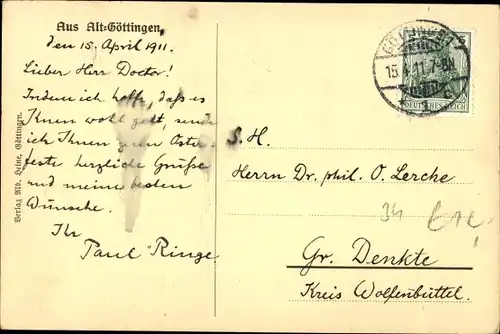 Aus Alt-Göttingen,
den 15. April 1911.
Lieber Herr Doctor!
Indem ich hoffe, daß es
Ihnen wohl geht, sende
ich Ihnen zum Oster-
feste herzliche Grüße
und meine besten
Wünsche.
Ihr
Paul Ringe
Verlag Alb. Heine, Göttingen.
15.4.11.7-8N.
DEUTSCHES REICH
S. H.
Herrn Dr. phil. O. Lerche
34
Gr. Denkte
Kreis Wolfenbüttel.